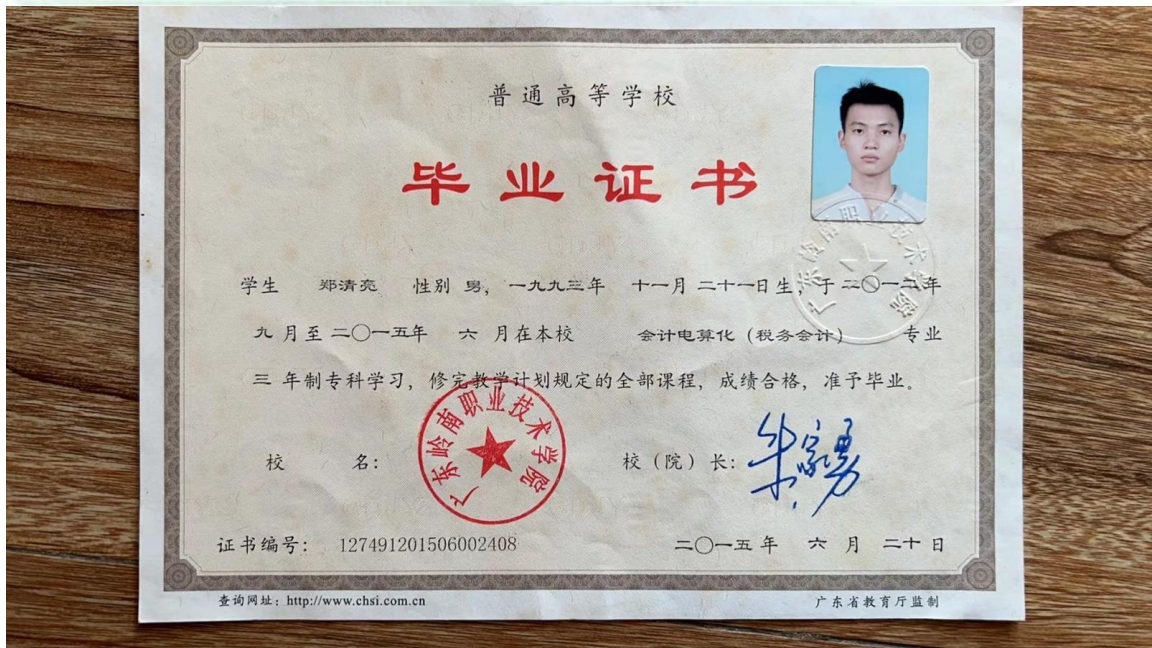 普通高等学校
毕业证书
学生 郑清亮 性别 男，一九九三年 十一月 二十一日生，于 二〇一二年
九 月至 二〇一五年 六 月在本校 会计电算化（税务会计） 专业
三 年制专科学习，修完教学计划规定的全部课程，成绩合格，准予毕业。
校 名：
广东岭南职业技术学院
校（院）长：
证书编号： 127491201506002408
二〇一五年 六 月 二十日
查询网址：http://www.chsi.com.cn
广东省教育厅监制
广东岭南职业技术学院